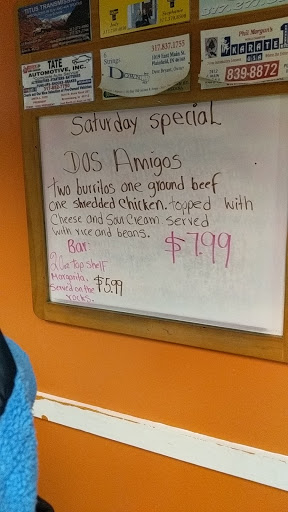 TITUS TRANSMISSION
TATE
AUTOMOTIVE, INC.
317.837.1755
Plainfield, IN 46168
Strings
Phil Morgan's
KARATE
839-8872
Saturday Special
Dos Amigos
two burritos one ground beef
one shredded chicken. topped with
cheese and sour cream served
with rice and beans.
$7.99
Bar
Top Shelf
Margarita.
Served on the
rocks.
$5.99